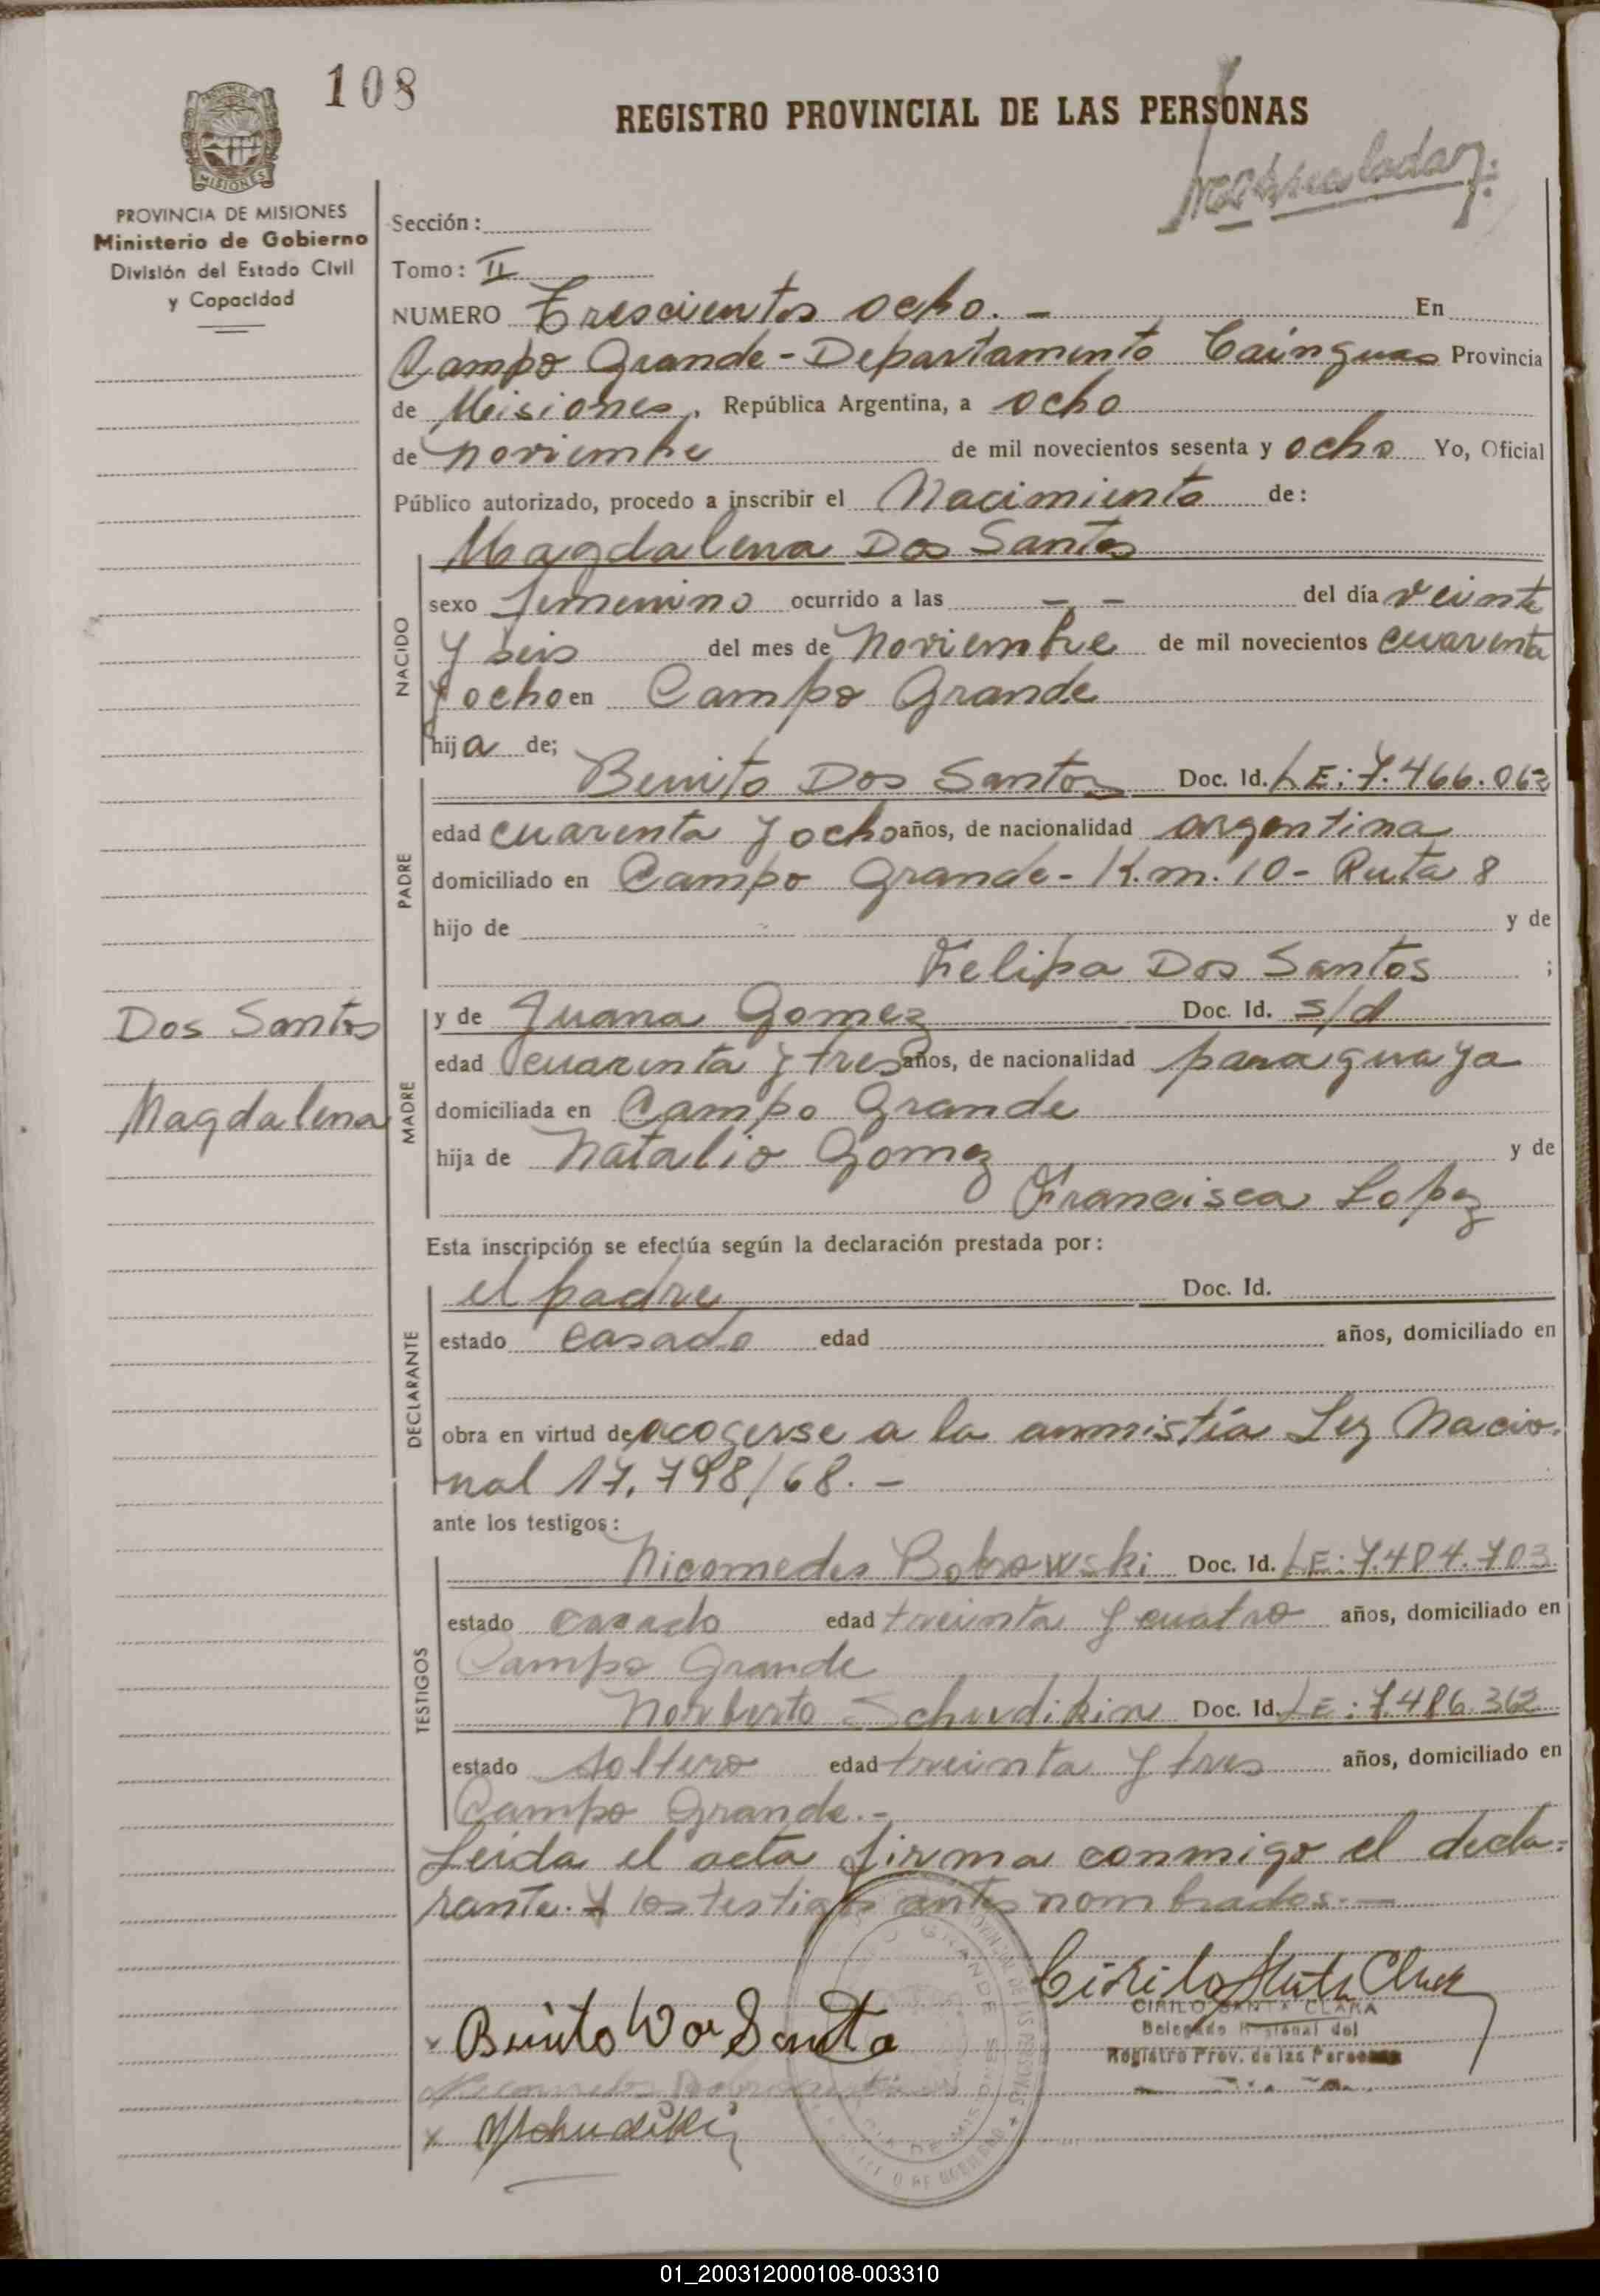 108
REGISTRO PROVINCIAL DE LAS PERSONAS
MISIONES
PROVINCIA DE MISIONES
Ministerio de Gobierno
División del Estado Civil
y Capacidad
Sección:
Tomo: II
NUMERO Trescientos ocho. - En
Campo Grande - Departamento Cainguas Provincia
de Misiones, República Argentina, a ocho
de noviembre de mil novecientos sesenta y ocho Yo, Oficial
Público autorizado, procedo a inscribir el Nacimiento de:
Magdalena Dos Santos
NACIDO
sexo femenino ocurrido a las - - del día veinte
y seis del mes de Noviembre de mil novecientos cuarenta
y ocho en Campo Grande
hija de;
PADRE
Benito Dos Santos Doc. Id. LE: 7.466.062
edad cuarenta y ocho años, de nacionalidad argentina
domiciliado en Campo Grande - K.m. 10 - Ruta 8
hijo de y de
Felipa Dos Santos ;
Dos Santos
Magdalena
MADRE
y de Juana Gomez Doc. Id. s/d
edad cuarenta y tres años, de nacionalidad paraguaya
domiciliada en Campo Grande
hija de Natalio Gomez y de
Francisca Lopez
Esta inscripción se efectúa según la declaración prestada por:
DECLARANTE
el padre Doc. Id.
estado casado edad años, domiciliado en
obra en virtud de acogerse a la anmistía Ley Nacio-
nal 17.798/68. -
ante los testigos:
TESTIGOS
Nicomedes Bobrowski Doc. Id. LE: 7.484.703
estado casado edad treinta y cuatro años, domiciliado en
Campo Grande
Norberto Doc. Id. LE: 7.486.362
estado soltero edad treinta y tres años, domiciliado en
Campo Grande. -
Leida el acta firma conmigo el decla-
rante. y los testigos antes nombrados. -
Cirilo Santa Clara
CIRILO SANTA CLARA
Delegado Regional del
Registro Prov. de las Personas
Benito Dos Santo
01_200312000108-003310